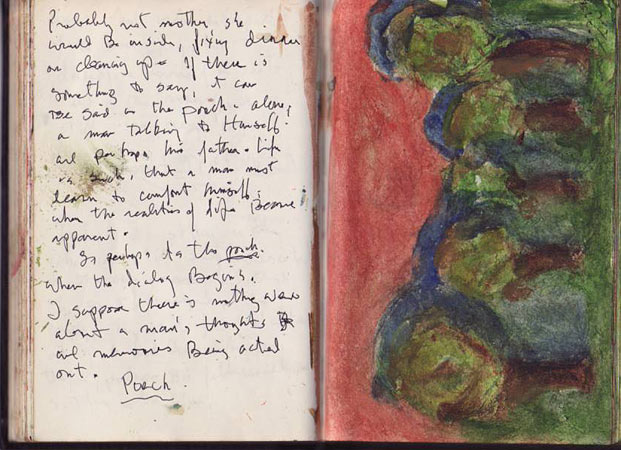 Probably not mother, she
would Be inside, fixing dinner
or cleaning up - If there is
something to say, it can
Be said on the porch - alone,
a man talking to Himself.
and perhaps his father. Life
is such, that a man must
learn to comfort himself.
when the realities of life Become
apparent.
So perhaps its the porch
when the dialog Begins.
I suppose there is nothing
about a man's thoughts
and memories Being acted
out.
Porch.